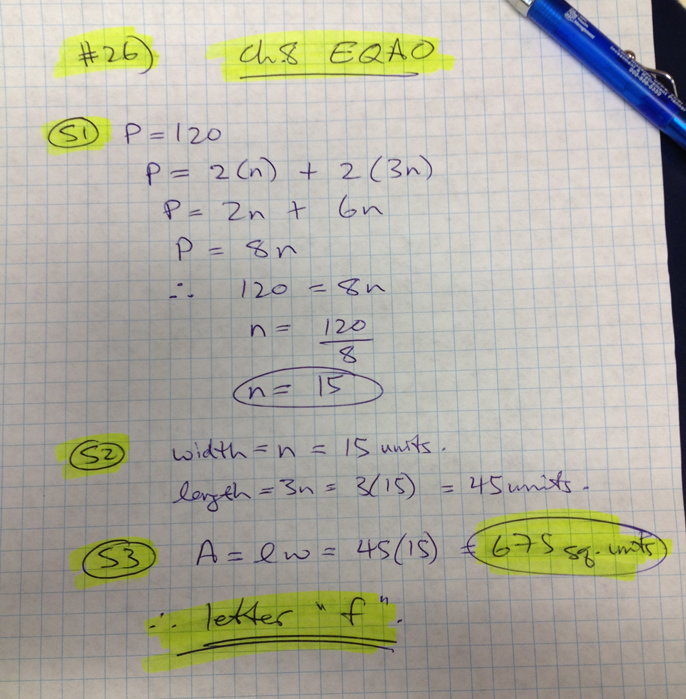 #26) ch.8 EQAO
S1 P = 120
P = 2(n) + 2(3n)
P = 2n + 6n
P = 8n
∴ 120 = 8n
n = 120/8
n = 15
S2 width = n = 15 units.
length = 3n = 3(15) = 45 units.
S3 A = lw = 45(15) = 675 sq. units
∴ letter "f".